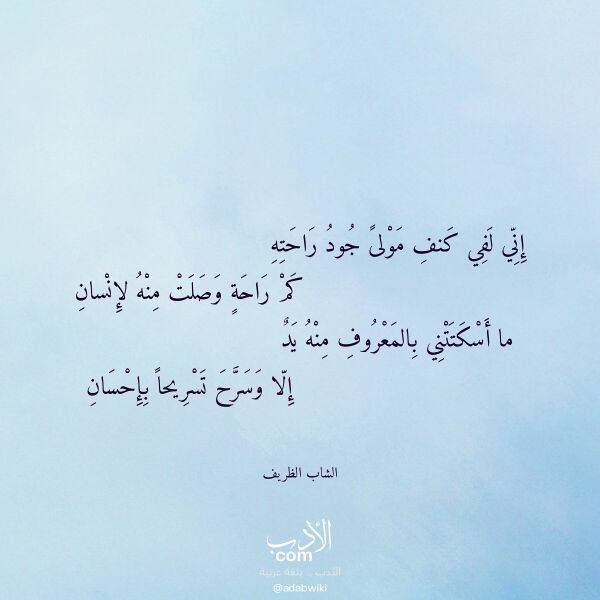 إِنِّي لَفِي كَنفِ مَوْلىً جُودُ رَاحَتِهِ
كَمْ رَاحَةٍ وَصَلَتْ مِنْهُ لإِنْسانِ
ما أَسْكَتَتْنِي بِالمَعْرُوفِ مِنْهُ يَدٌ
إِلّا وَسَرَّحَ تَسْرِيحاً بِإِحْسَانِ
الشاب الظريف
الأدب
com
الأدب .. بلغة عربية
@adabwiki